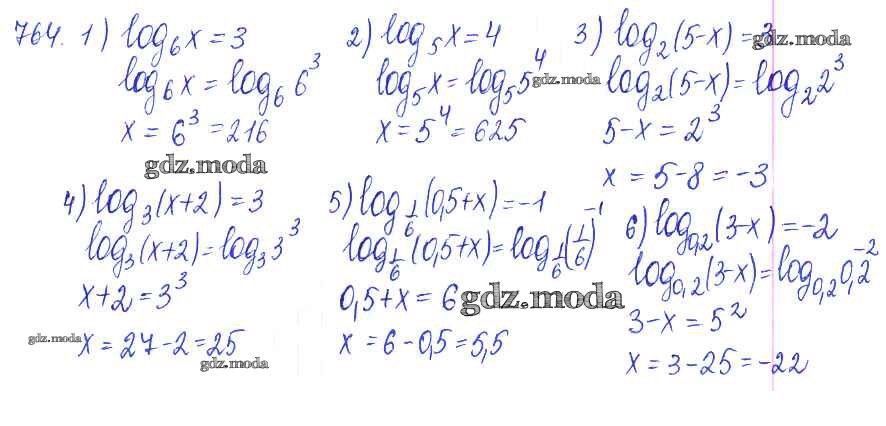 764. 1) log₆x = 3
log₆x = log₆6³
x = 6³ = 216
2) log₅x = 4
log₅x = log₅5⁴
x = 5⁴ = 625
3) log₂(5-x) = 3
log₂(5-x) = log₂2³
5-x = 2³
x = 5-8 = -3
4) log₃(x+2) = 3
log₃(x+2) = log₃3³
x+2 = 3³
x = 27-2 = 25
5) log_{1/6}(0,5+x) = -1
log_{1/6}(0,5+x) = log_{1/6}(1/6)⁻¹
0,5+x = 6
x = 6-0,5 = 5,5
6) log_{0,2}(3-x) = -2
log_{0,2}(3-x) = log_{0,2}0,2⁻²
3-x = 5²
x = 3-25 = -22
gdz.moda
gdz.moda
gdz.moda
gdz.moda
gdz.moda
gdz.moda